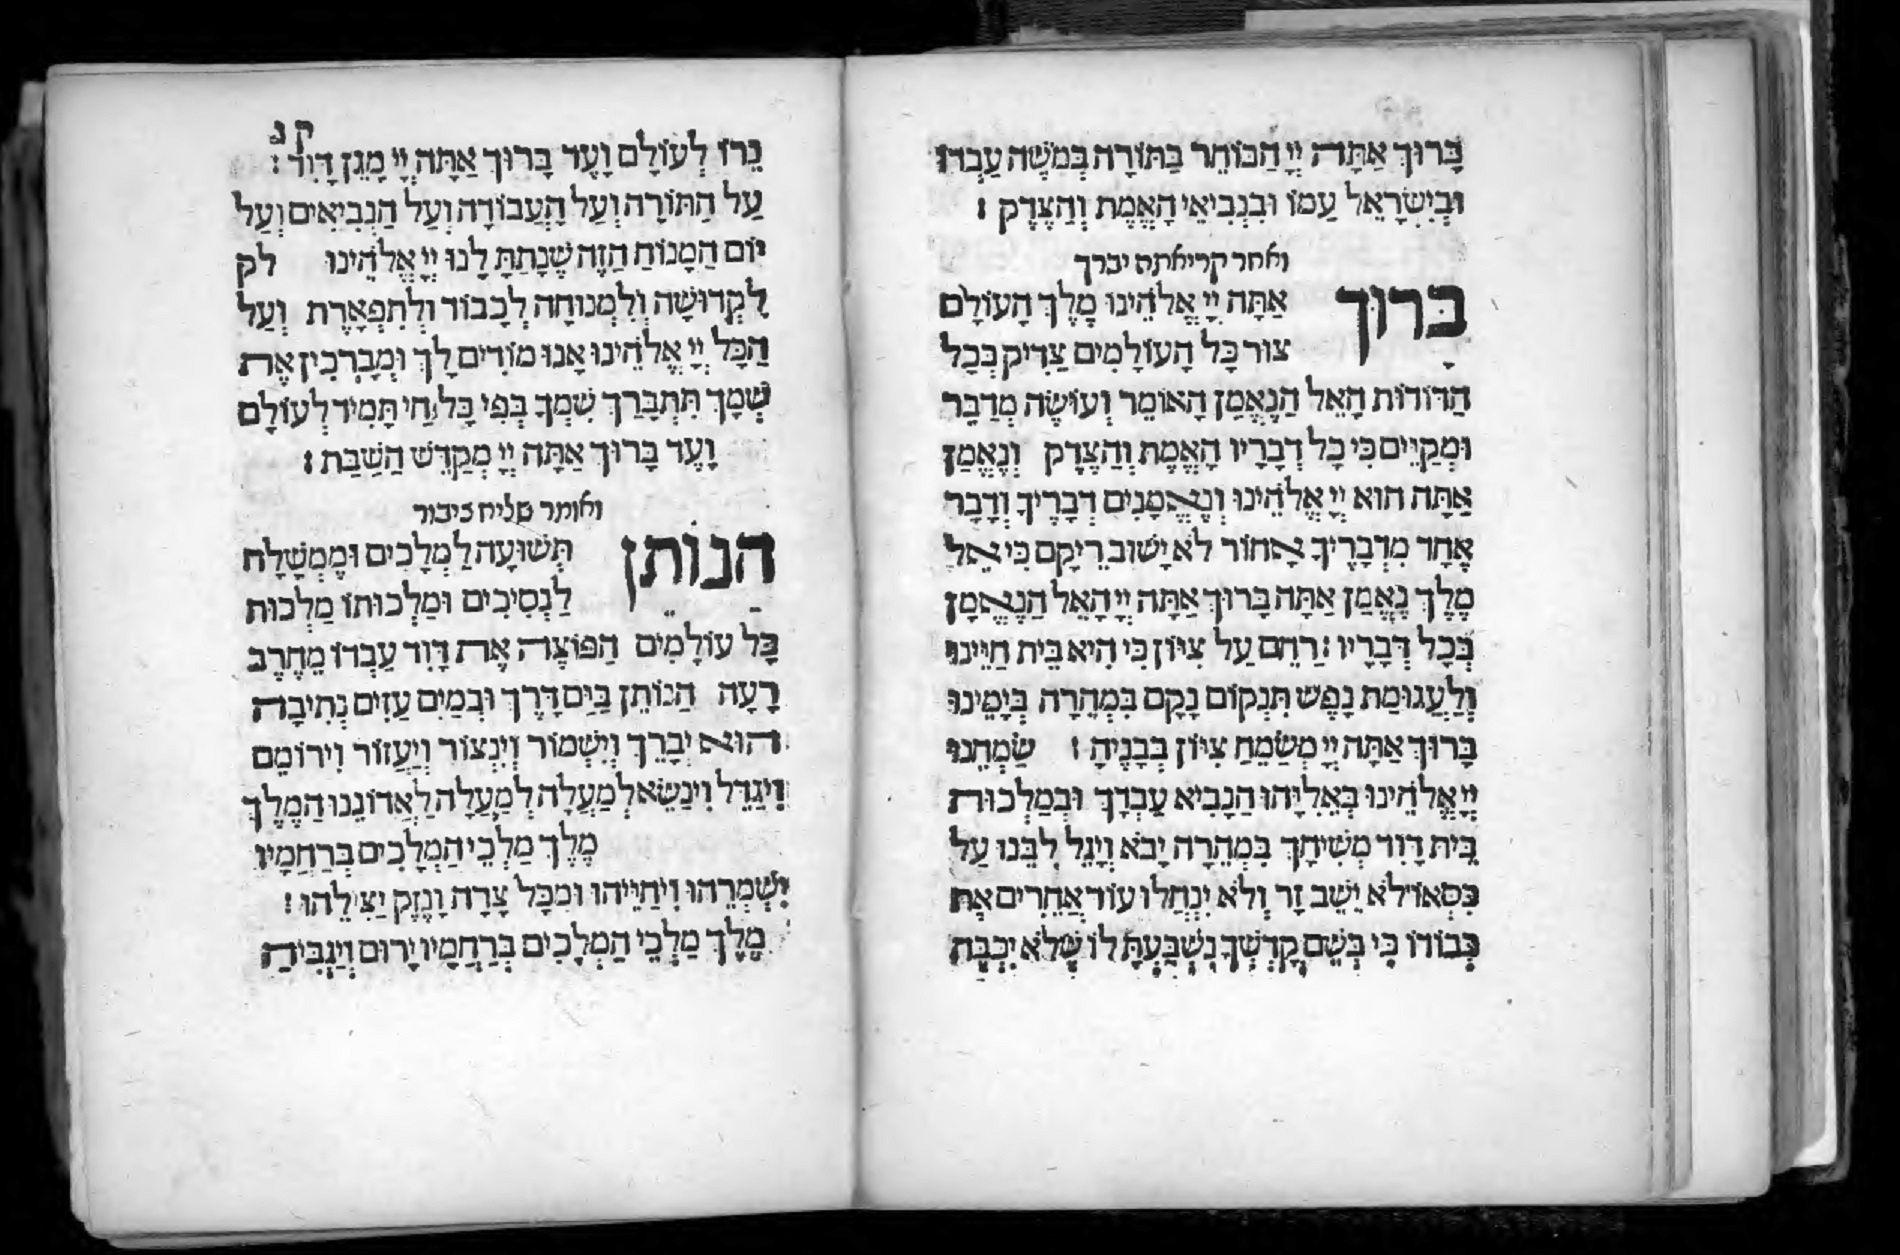 בָּרוּךְ אַתָּה יְיָ הַבּוֹחֵר בַּתּוֹרָה בְּמֹשֶׁה עַבְדּוֹ
וּבְיִשְׂרָאֵל עַמּוֹ וּבִנְבִיאֵי הָאֱמֶת וְהַצֶּדֶק :
ואחר קריאתה יברך
בָּרוּךְ אַתָּה יְיָ אֱלֹהֵינוּ מֶלֶךְ הָעוֹלָם
צוּר כָּל הָעוֹלָמִים צַדִּיק בְּכָל
הַדּוֹרוֹת הָאֵל הַנֶּאֱמָן הָאוֹמֵר וְעוֹשֶׂה מְדַבֵּר
וּמְקַיֵּים כִּי כָל דְּבָרָיו הָאֱמֶת וְהַצֶּדֶק וְנֶאֱמָן
אַתָּה הוּא יְיָ אֱלֹהֵינוּ וְנֶאֱמָנִים דְּבָרֶיךָ וְדָבָר
אֶחָד מִדְּבָרֶיךָ אָחוֹר לֹא יָשׁוּב רֵיקָם כִּי אֵל
מֶלֶךְ נֶאֱמָן אַתָּה בָּרוּךְ אַתָּה יְיָ הָאֵל הַנֶּאֱמָן
בְּכָל דְּבָרָיו : רַחֵם עַל צִיּוֹן כִּי הִיא בֵּית חַיֵּינוּ
וְלַעֲגוּמַת נֶפֶשׁ תִּנְקוֹם נָקָם בִּמְהֵרָה בְּיָמֵינוּ
בָּרוּךְ אַתָּה יְיָ מְשַׂמֵּחַ צִיּוֹן בְּבָנֶיהָ : שַׂמְּחֵנוּ
יְיָ אֱלֹהֵינוּ בְּאֵלִיָּהוּ הַנָּבִיא עַבְדָּךְ וּבְמַלְכוּת
בֵּית דָּוִד מְשִׁיחָךְ בִּמְהֵרָה יָבֹא וְיָגֵל לִבֵּנוּ עַל
כִּסְאוֹ לֹא יֵשֵׁב זָר וְלֹא יִנְחֲלוּ עוֹד אֲחֵרִים אֶת
כְּבוֹדוֹ כִּי בְשֵׁם קָדְשְׁךָ נִשְׁבַּעְתָּ לּוֹ שֶׁלֹּא יִכְבֶּה
ק נ
נֵרוֹ לְעוֹלָם וָעֶד בָּרוּךְ אַתָּה יְיָ מָגֵן דָּוִד :
עַל הַתּוֹרָה וְעַל הָעֲבוֹדָה וְעַל הַנְּבִיאִים וְעַל
יוֹם הַמָּנוֹחַ הַזֶּה שֶׁנָּתַתָּ לָנוּ יְיָ אֱלֹהֵינוּ לק
לִקְדוּשָּׁה וְלִמְנוּחָה לְכָבוֹד וּלְתִפְאָרֶת וְעַל
הַכָּל יְיָ אֱלֹהֵינוּ אָנוּ מוֹדִים לָךְ וּמְבָרְכִין אֶת
שְׁמָךְ תִּתְבָּרַךְ שִׁמְךָ בְּפִי כָּל חַי תָּמִיד לְעוֹלָם
וָעֶד בָּרוּךְ אַתָּה יְיָ מְקַדֵּשׁ הַשַּׁבָּת :
ואומר שליח ציבור
הַנּוֹתֵן תְּשׁוּעָה לַמְּלָכִים וּמֶמְשָׁלָה
לַנְּסִיכִים וּמַלְכוּתוֹ מַלְכוּת
כָּל עוֹלָמִים הַפּוֹצֶה אֶת דָּוִד עַבְדּוֹ מֵחֶרֶב
רָעָה הַנּוֹתֵן בַּיָּם דֶּרֶךְ וּבְמַיִם עַזִּים נְתִיבָה
הוּא יְבָרֵךְ וְיִשְׁמוֹר וְיִנְצוֹר וְיַעֲזוֹר וִירוֹמֵם
וִיגַדֵּל וִינַשֵּׂא לְמַעְלָה לְמַעְלָה לַאֲדוֹנֵנוּ הַמֶּלֶךְ
מֶלֶךְ מַלְכֵי הַמְּלָכִים בְּרַחֲמָיו
יִשְׁמְרֵהוּ וִיחַיֵּיהוּ וּמִכָּל צָרָה וָנֶזֶק יַצִּילֵהוּ :
מֶלֶךְ מַלְכֵי הַמְּלָכִים בְּרַחֲמָיו יָרוּם וְיַגְבִּיהַּ